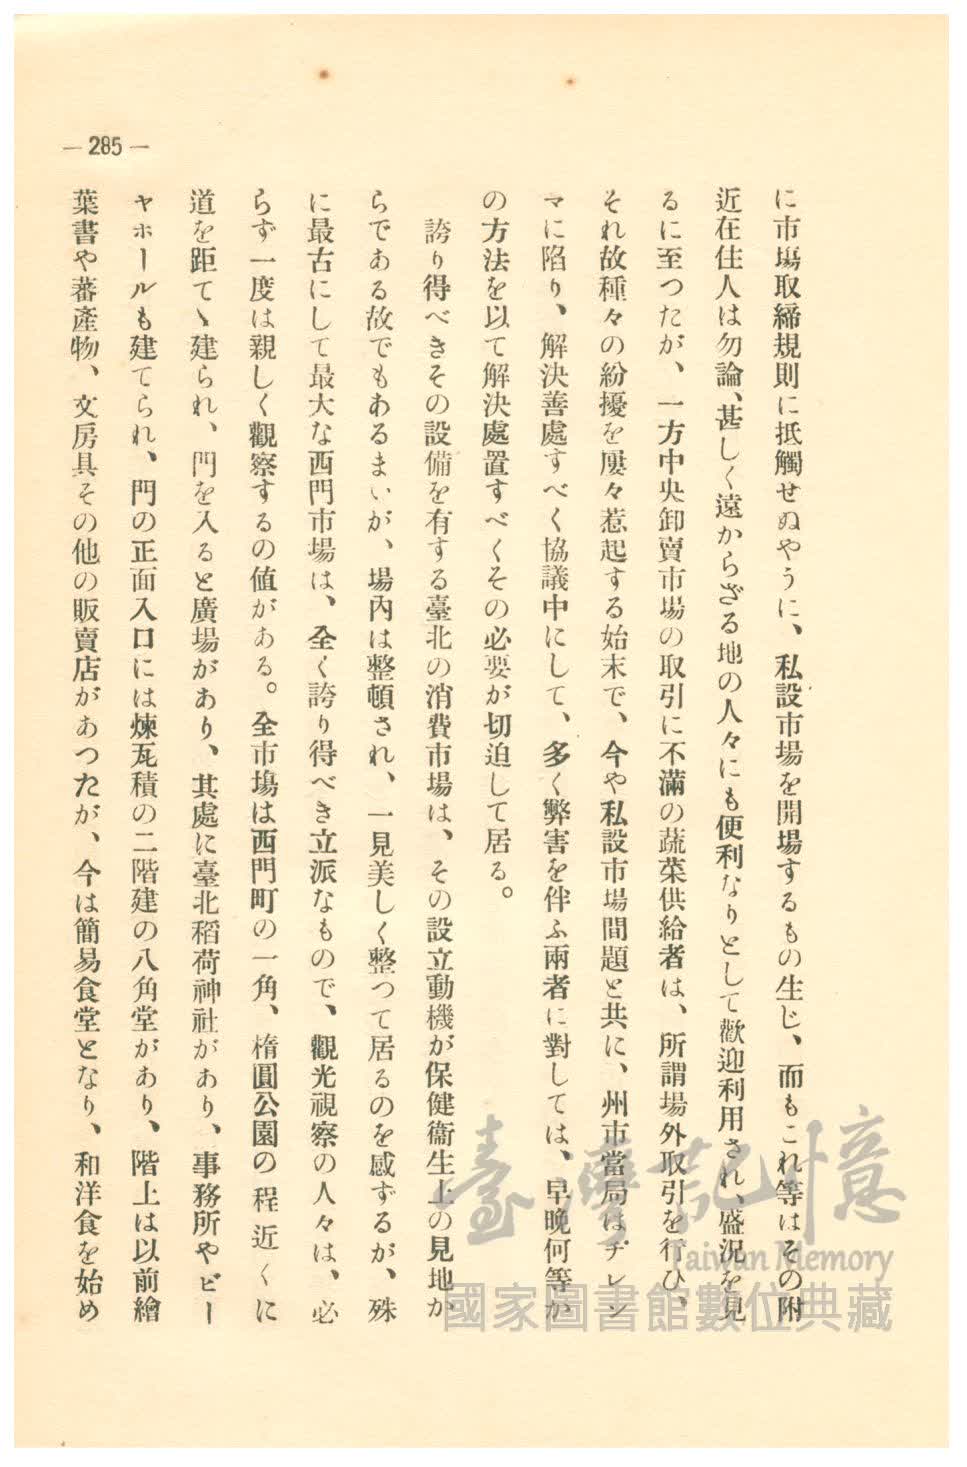 — 285 —
に市場取締規則に抵觸せぬやうに、私設市場を開場するもの生じ、而もこれ等はその附
近在住人は勿論、甚しく遠からざる地の人々にも便利なりとして歡迎利用され、盛況を見
るに至つたが、一方中央卸賣市場の取引に不滿の蔬菜供給者は、所謂場外取引を行ひ、
それ故種々の紛擾を屢々惹起する始末で、今や私設市場間題と共に、州市當局はヂレン
マに陷り、解決善處すべく協議中にして、多く弊害を伴ふ兩者に對しては、早晩何等か
の方法を以て解決處置すべくその必要が切迫して居る。
誇り得べきその設備を有する臺北の消費市場は、その設立動機が保健衞生上の見地か
らである故でもあるまいが、場內は整頓され、一見美しく整つて居るのを感ずるが、殊
に最古にして最大な西門市場は、全く誇り得べき立派なもので、觀光視察の人々は、必
らず一度は親しく觀察するの値がある。全市場は西門町の一角、楕圓公園の程近くに
道を距てゝ建られ、門を入ると廣場があり、其處に臺北稻荷神社があり、事務所やビー
ヤホールも建てられ、門の正面入口には煉瓦積の二階建の八角堂があり、階上は以前繪
葉書や蕃產物、文房具その他の販賣店があつたが、今は簡易食堂となり、和洋食を始め
臺灣記憶
Taiwan Memory
國家圖書館數位典藏